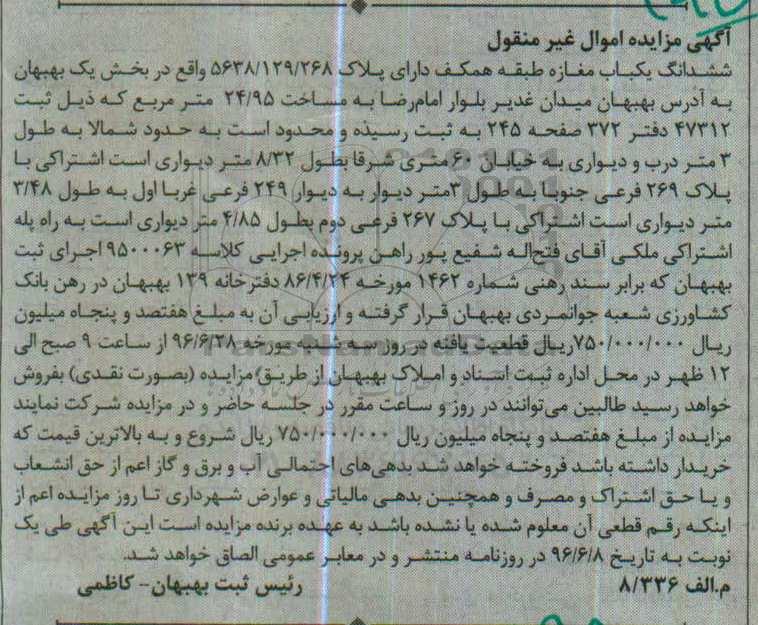 آگهی مزایده اموال غیر منقول
ششدانگ یکباب مغازه طبقه همکف دارای پلاک ۵۶۳۸/۱۲۹/۲۶۸ واقع در بخش یک بهبهان
به آدرس بهبهان میدان غدیر بلوار امام‌رضا به مساحت ۲۴/۹۵ متر مربع که ذیل ثبت
۴۷۳۱۲ دفتر ۳۷۲ صفحه ۲۴۵ به ثبت رسیده و محدود است به حدود شمالا به طول
۳ متر درب و دیواری به خیابان ۶۰ متری شرقا بطول ۸/۳۲ متر دیواری است اشتراکی با
پلاک ۲۶۹ فرعی جنوبا به طول ۳متر دیوار به دیوار ۲۴۹ فرعی غربا اول به طول ۳/۴۸
متر دیواری است اشتراکی با پلاک ۲۶۷ فرعی دوم بطول ۴/۸۵ متر دیواری است به راه پله
اشتراکی ملکی آقای فتح‌اله شفیع پور راهن پرونده اجرایی کلاسه ۹۵۰۰۰۶۳ اجرای ثبت
بهبهان که برابر سند رهنی شماره ۱۴۶۲ مورخه ۸۶/۴/۲۴ دفترخانه ۱۳۹ بهبهان در رهن بانک
کشاورزی شعبه جوانمردی بهبهان قرار گرفته و ارزیابی آن به مبلغ هفتصد و پنجاه میلیون
ریال ۷۵۰/۰۰۰/۰۰۰ریال قطعیت یافته در روز سه شنبه مورخه ۹۶/۶/۲۸ از ساعت ۹ صبح الی
۱۲ ظهر در محل اداره ثبت اسناد و املاک بهبهان از طریق مزایده (بصورت نقدی) بفروش
خواهد رسید طالبین می‌توانند در روز و ساعت مقرر در جلسه حاضر و در مزایده شرکت نمایند
مزایده از مبلغ هفتصد و پنجاه میلیون ریال ۷۵۰/۰۰۰/۰۰۰ ریال شروع و به بالاترین قیمت که
خریدار داشته باشد فروخته خواهد شد بدهی‌های احتمالی آب و برق و گاز اعم از حق انشعاب
و یا حق اشتراک و مصرف و همچنین بدهی مالیاتی و عوارض شهرداری تا روز مزایده اعم از
اینکه رقم قطعی آن معلوم شده یا نشده باشد به عهده برنده مزایده است این آگهی طی یک
نوبت به تاریخ ۹۶/۶/۸ در روزنامه منتشر و در معابر عمومی الصاق خواهد شد.
م.الف ۸/۳۳۶ رئیس ثبت بهبهان- کاظمی